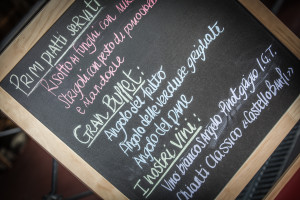 PRIMI PIATTI SERVITI
Risotto ai funghi con
Strozzi con pesto di pomodoro
e mandorle
GRAN BUFFET:
Angolo del fritto
Angolo delle verdure grigliate
Angolo del pane
I NOSTRI VINI:
Vino bianco Angelo Pinot grigio I.G.T.
Chianti Classico "Castello